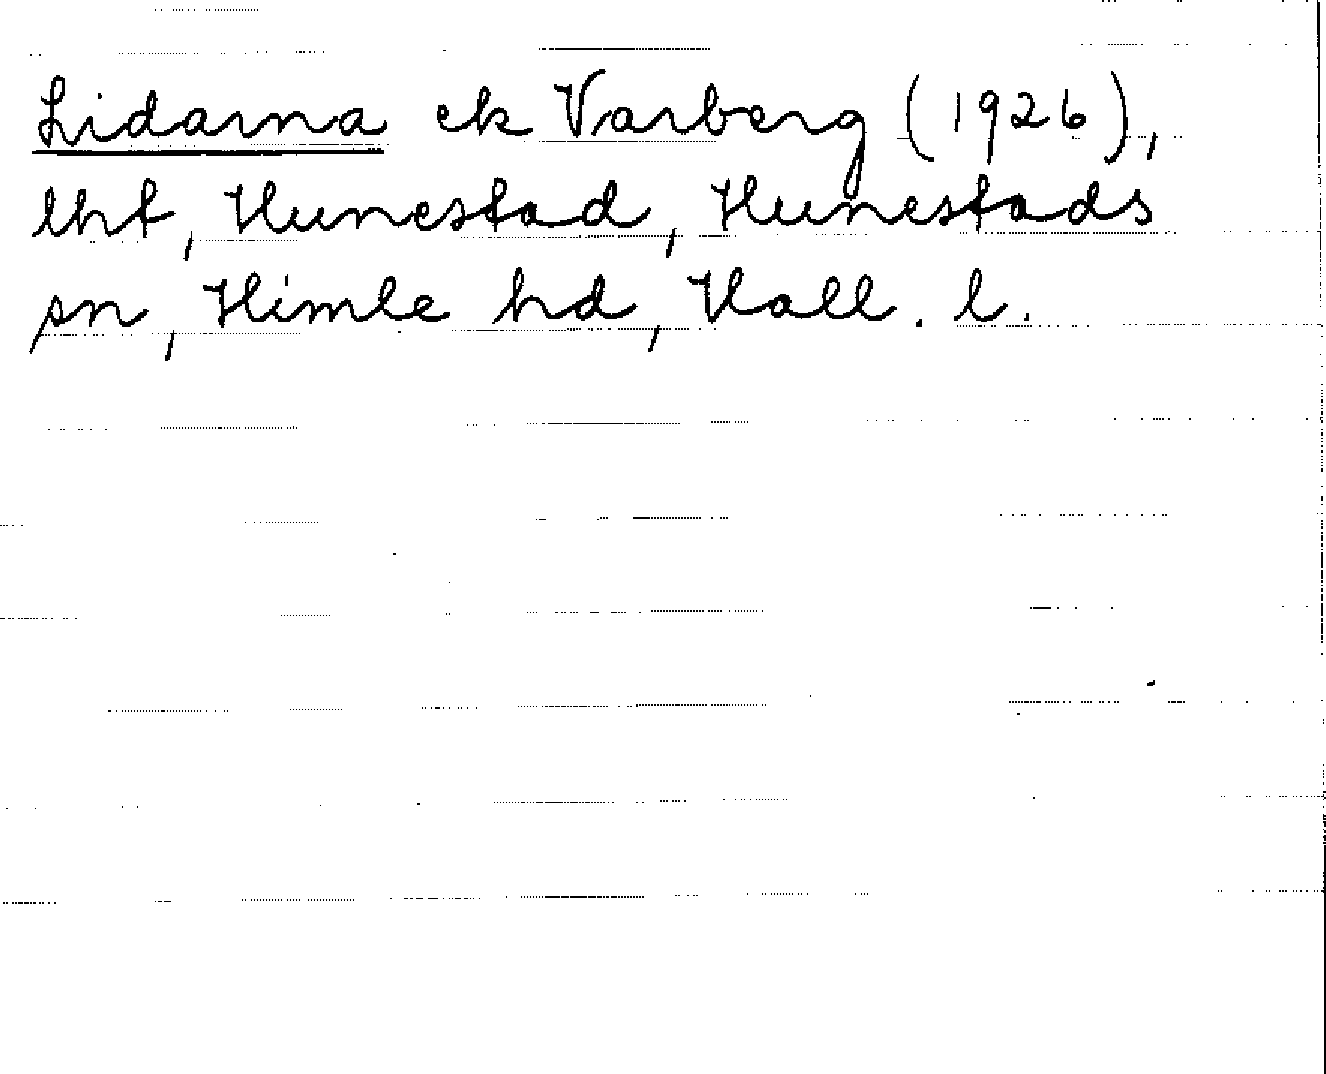 Lidarna ek Varberg (1926),
lht, Hunestad, Hunestads
sn, Himle hd, Hall. l.